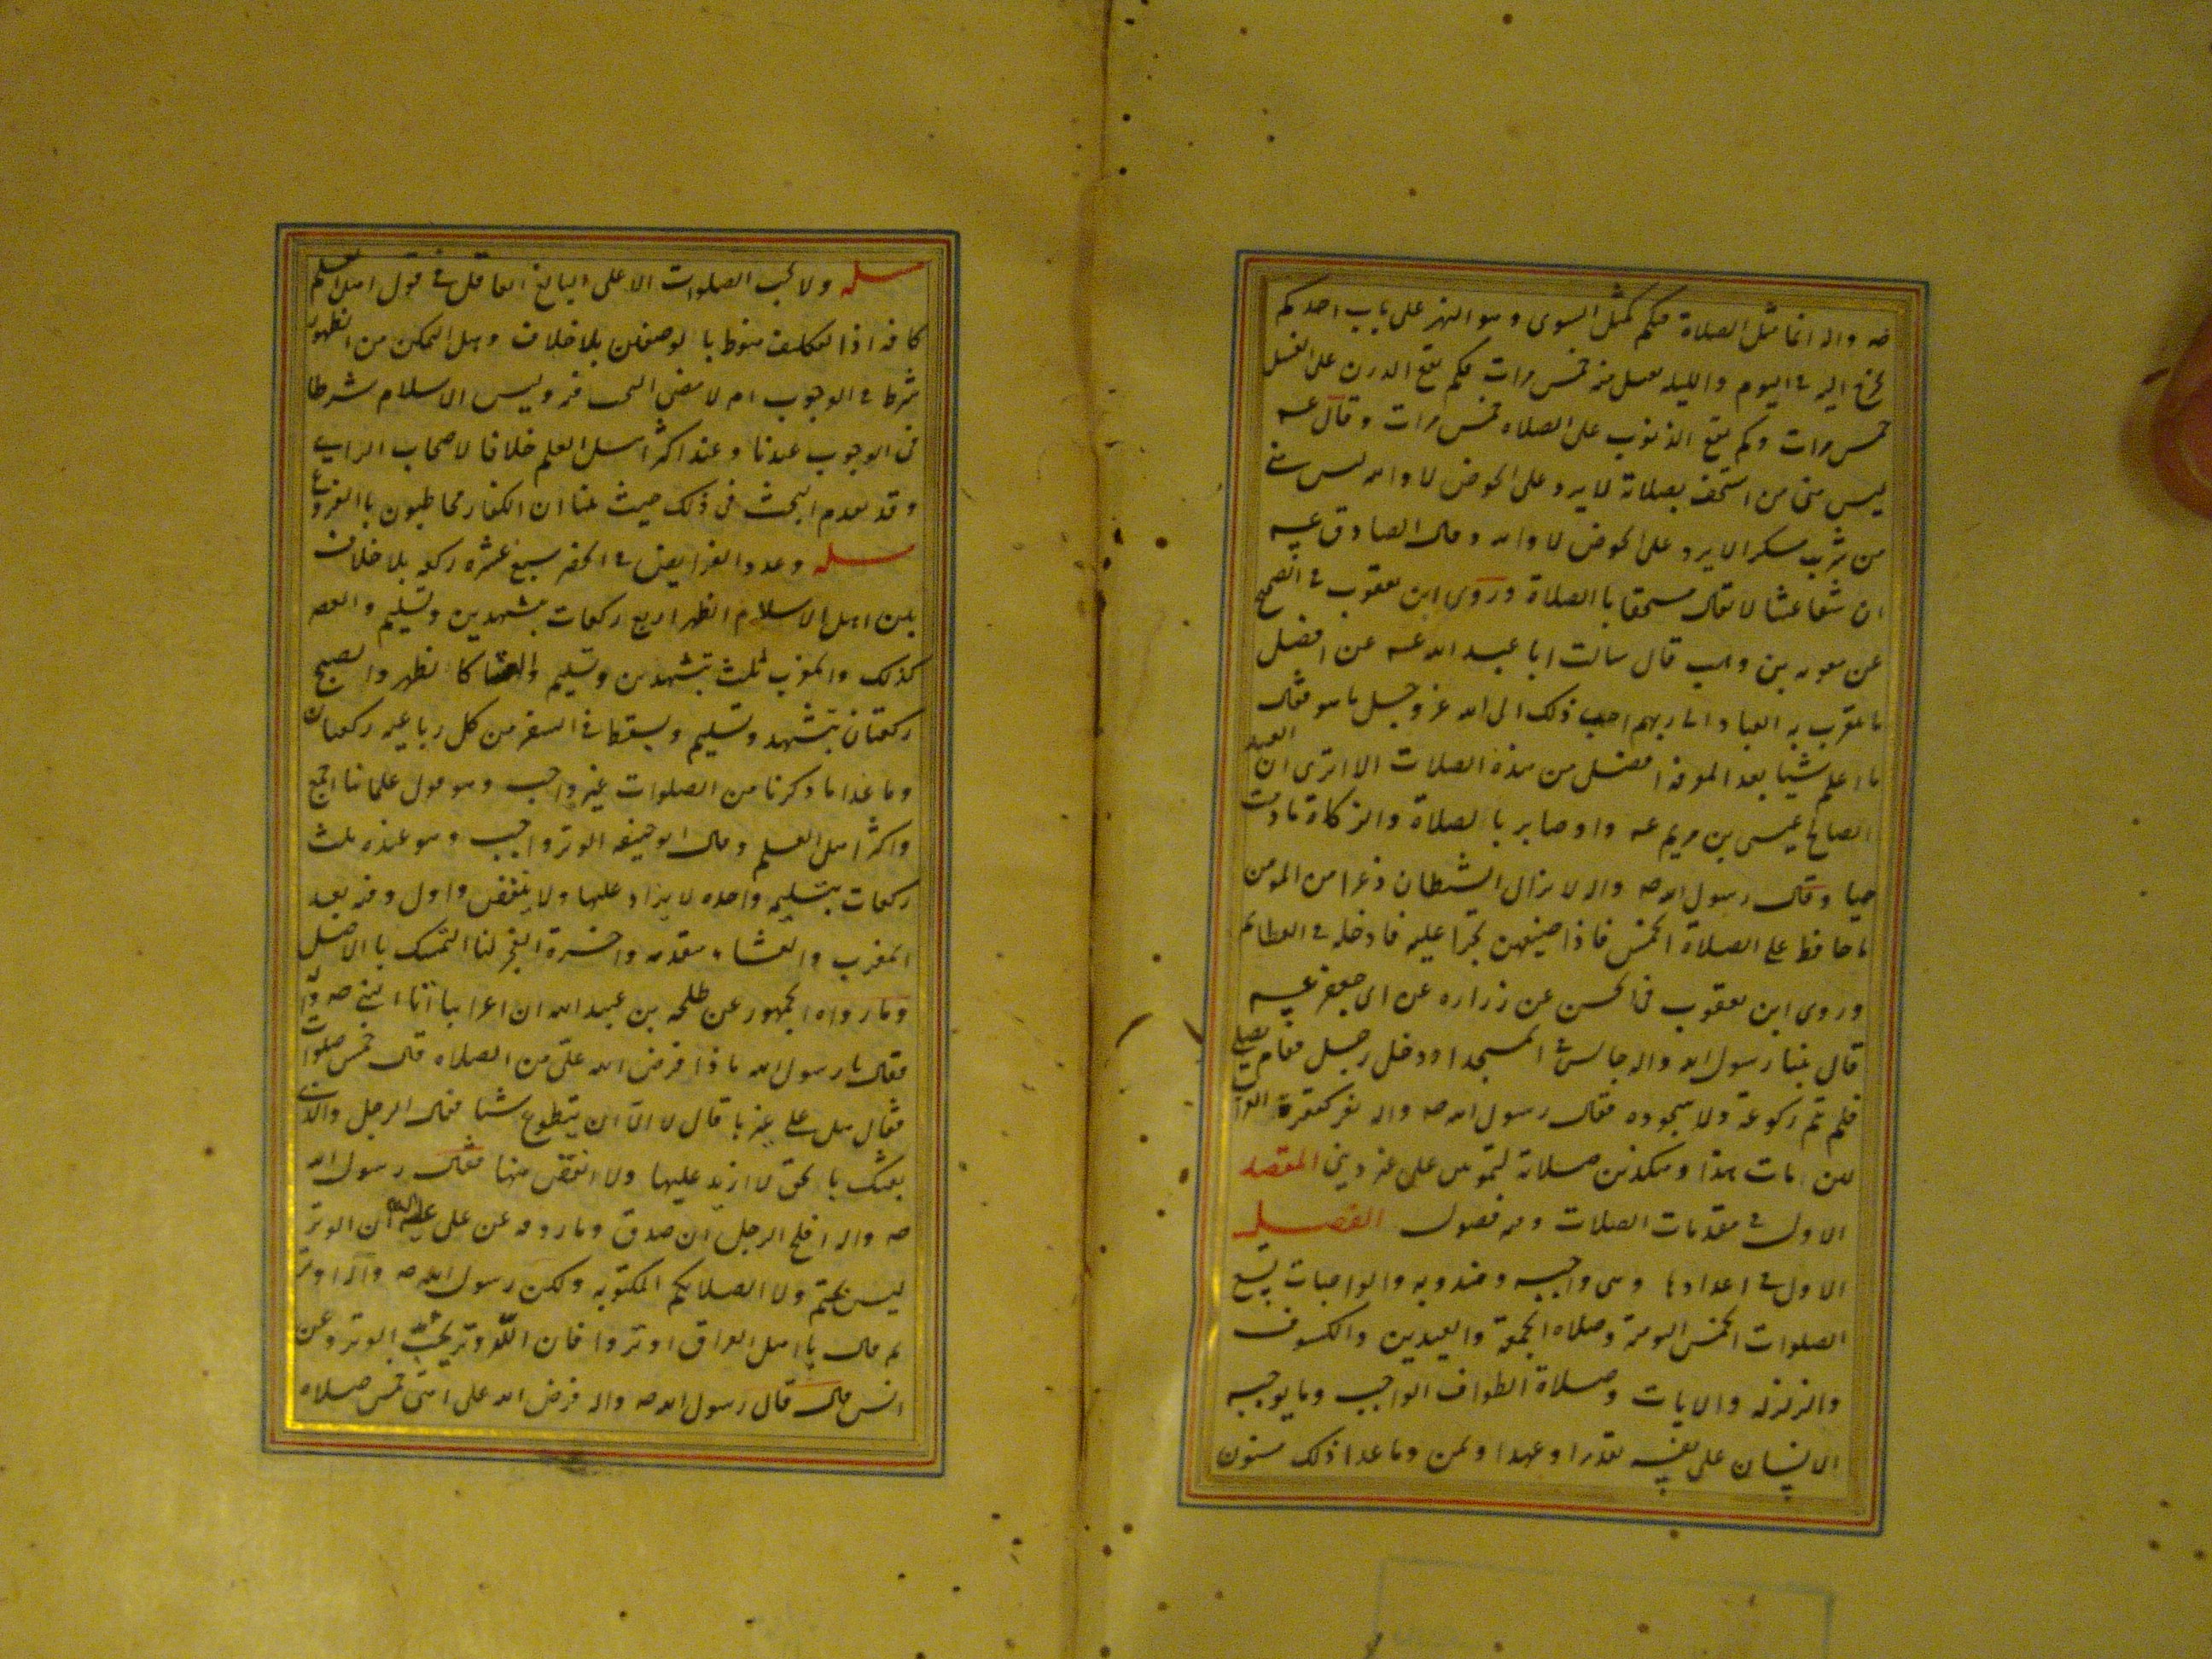 صه واله انما مثل الصلاة فيكم كمثل السرى وهو النهر على باب احدكم
يخرج اليه في اليوم والليله يغتسل منه خمس مرات فلم يبق الدرن على الغسل
خمس مرات ولم يبق الذنوب على الصلاه خمس مرات وقال عه
ليس منى من استخف بصلاته لا يرد على الحوض لا والله ليس منى
من شرب مسكرا لا يرد على الحوض لا والله وقال الصادق عه
ان شفاعتنا لا تنال مستخفا با الصلاة وروى ابن يعقوب في الصحيح
عن معويه بن وهب قال سالت ابا عبد الله عه عن افضل
ما يتقرب به العباد الى ربهم احب ذلك الى الله عز وجل ما هو فقال
ما اعلم شيئا بعد المعرفه افضل من هذه الصلات الا ترى ان العبد
الصالح عيسى بن مريم عه واوصانى با لصلاة والزكاة ما دمت
حيا وقال رسول الله صه واله لا يزال الشيطان ذعرا من المومن
ما حافظ على الصلاة الخمس فاذا ضيعهن تجرا عليه فادخله في العظائم
وروى ابن يعقوب فى الحسن عن زراره عن ابى جعفر عه
قال بينا رسول الله واله جالس في المسجد اذ دخل رجل فقام يصلى
فلم يتم ركوعه ولا سجوده فقال رسول الله صه واله نقر كنقرة الغراب
لئن مات هذا وهكذى صلاته ليموتن على غير دينى المقصد
الاول في مقدمات الصلات وفيه فصول الفصل
الاول في اعدادها وهى واجبه ومندوبه والواجبات تسع
الصلوات الخمس اليوميه وصلاه الجمعة والعيدين والكسوف
والزلزله والايات وصلاة الطواف الواجب وما يوجبه
الانسان على نفسه بنذر او عهد او يمين وما عدا ذلك مسنون
مسله ولا يجب الصلوات الا على البالغ العاقل في قول اهل العلم
كافه اذ التكليف منوط با لوصفين بلا خلاف وهل التمكن من الطهور
شرط في الوجوب ام لا مضى البحث فيه وليس الاسلام شرطا
فى الوجوب عندنا وعند اكثر اهل العلم خلافا لاصحاب الراى
وقد تقدم البحث فى ذلك حيث بينا ان الكفار مخاطبون با الفروع
مسله وعدد الفرايض في الحضر سبع عشره ركعه بلا خلاف
بين اهل الاسلام الظهر اربع ركعات بتشهدين وتسليم والعصر
كذلك والمغرب ثلث بتشهدين وتسليم والعشا كا لظهر والصبح
ركعتان بتشهد وتسليم ويسقط في السفر من كل رباعيه ركعتان
وما عدا ما ذكرنا من الصلوات غير واجب وهو قول علمائنا اجمع
واكثر اهل العلم وقال ابو حنيفه الوتر واجب وهو عنده ثلث
ركعات بتسليمه واحده لا يزاد عليها ولا ينقص واول وقته بعد
المغرب والعشاء مقدمه واخره الفجر لنا التمسك با الاصل
وما رواه الجمهور عن طلحه بن عبيد الله ان اعرابيا اتا النبى صه واله
فقال يا رسول الله ماذا فرض الله على من الصلاه قال خمس صلوات
فقال هل على غيرها قال لا الا ان يتطوع شيئا فقال الرجل والذى
بعثك با لحق لا ازيد عليها ولا انقص منها فقال رسول الله
صه واله افلح الرجل ان صدق وما رووه عن على عليه السلم ان الوتر
ليس بحتم ولا الصلاتكم المكتوبه ولكن رسول الله صه واله اوتر
ثم قال يا اهل العراق اوتروا فان الله وتر يحب الوتر وعن
انس قال قال رسول الله صه واله فرض الله على امتى خمس صلاه